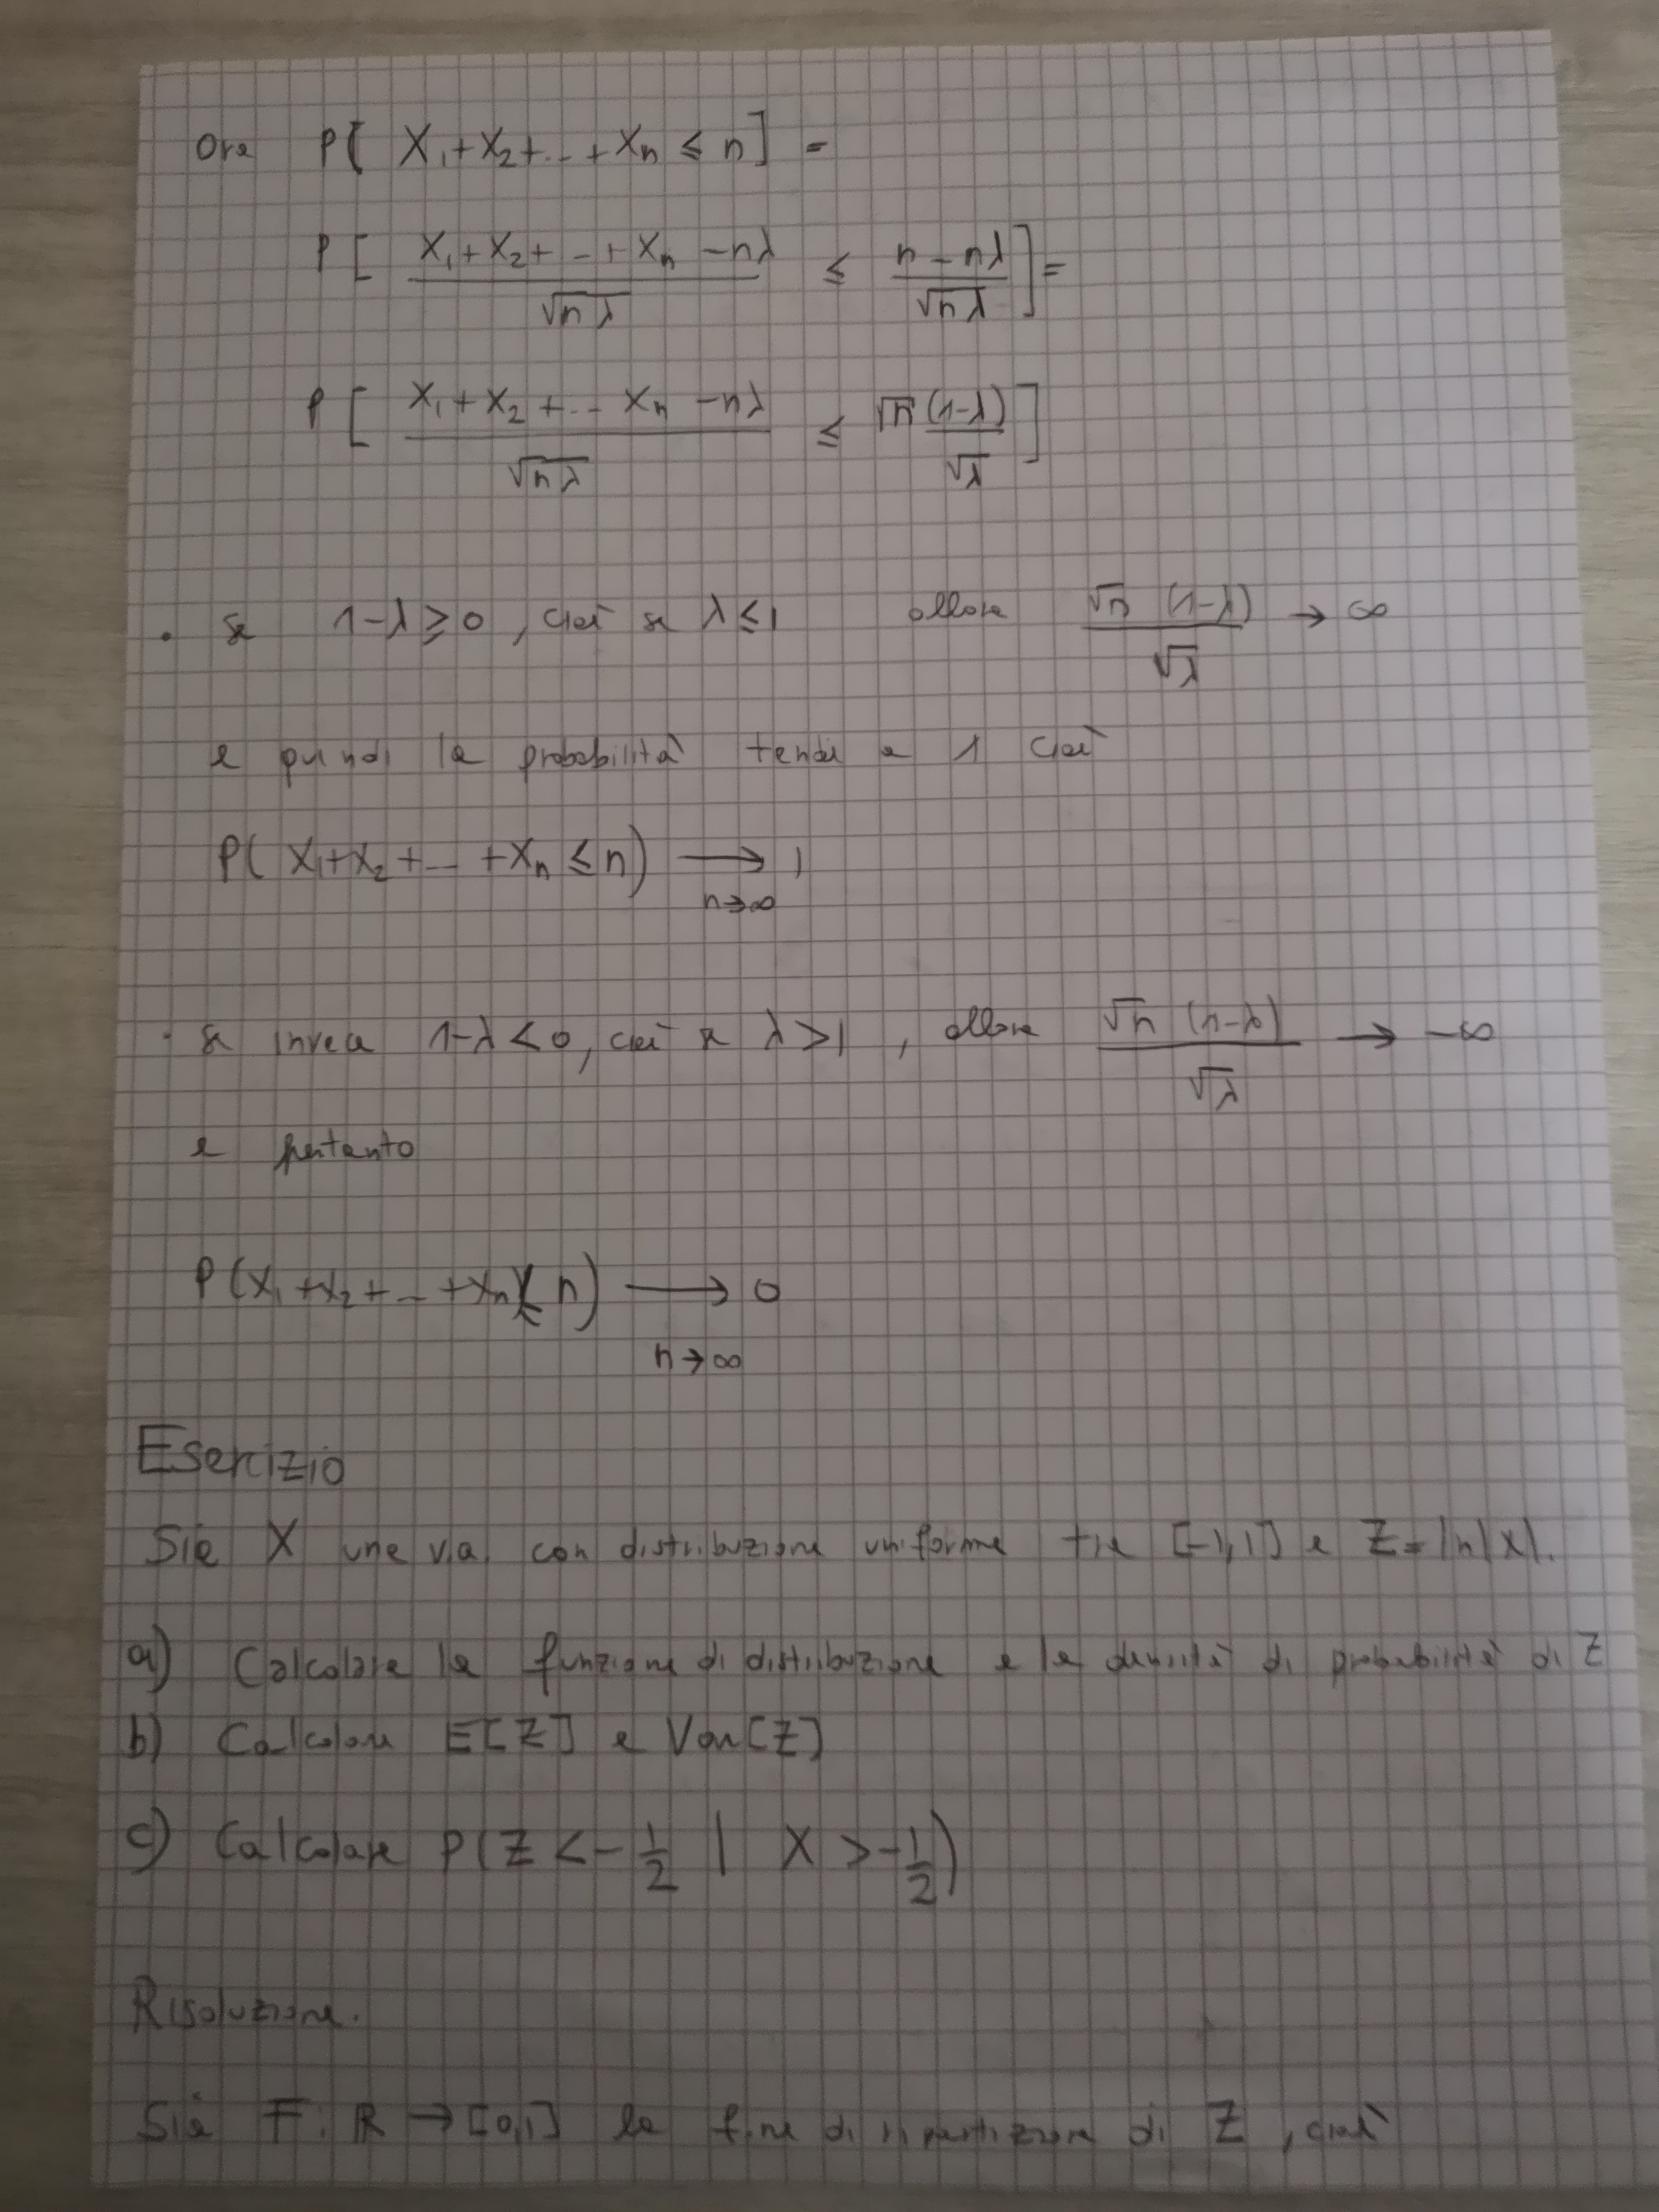 Ora P[ X₁+X₂+...+Xₙ ≤ n ] =
P[ (X₁+X₂+...+Xₙ -nλ)/√(nλ) ≤ (n-nλ)/√(nλ) ] =
P[ (X₁+X₂+... Xₙ -nλ)/√(nλ) ≤ √n (1-λ)/√λ ]
• se 1-λ ≥ 0, cioè se λ ≤ 1 allora √n (1-λ)/√λ → ∞
e quindi la probabilità tende a 1 cioè
P( X₁+X₂+...+Xₙ ≤ n) → 1
n→∞
• se invece 1-λ < 0, cioè se λ > 1, allora √n (1-λ)/√λ → -∞
e pertanto
P(X₁+X₂+...+Xₙ ≤ n) → 0
n→∞
Esercizio
Sia X una v.a. con distribuzione uniforme tra [-1,1] e Z = ln|X|.
a) Calcolare la funzione di distribuzione e la densità di probabilità di Z
b) Calcolare E[Z] e Var[Z]
c) Calcolare P(Z < -1/2 | X > -1/2)
Risoluzione.
Sia F: ℝ → [0,1] la di ripartizione di Z, cioè